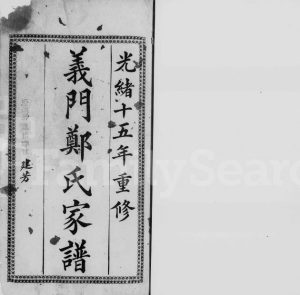 光緒十五年重修
義門鄭氏家譜
建芳
FamilySearch